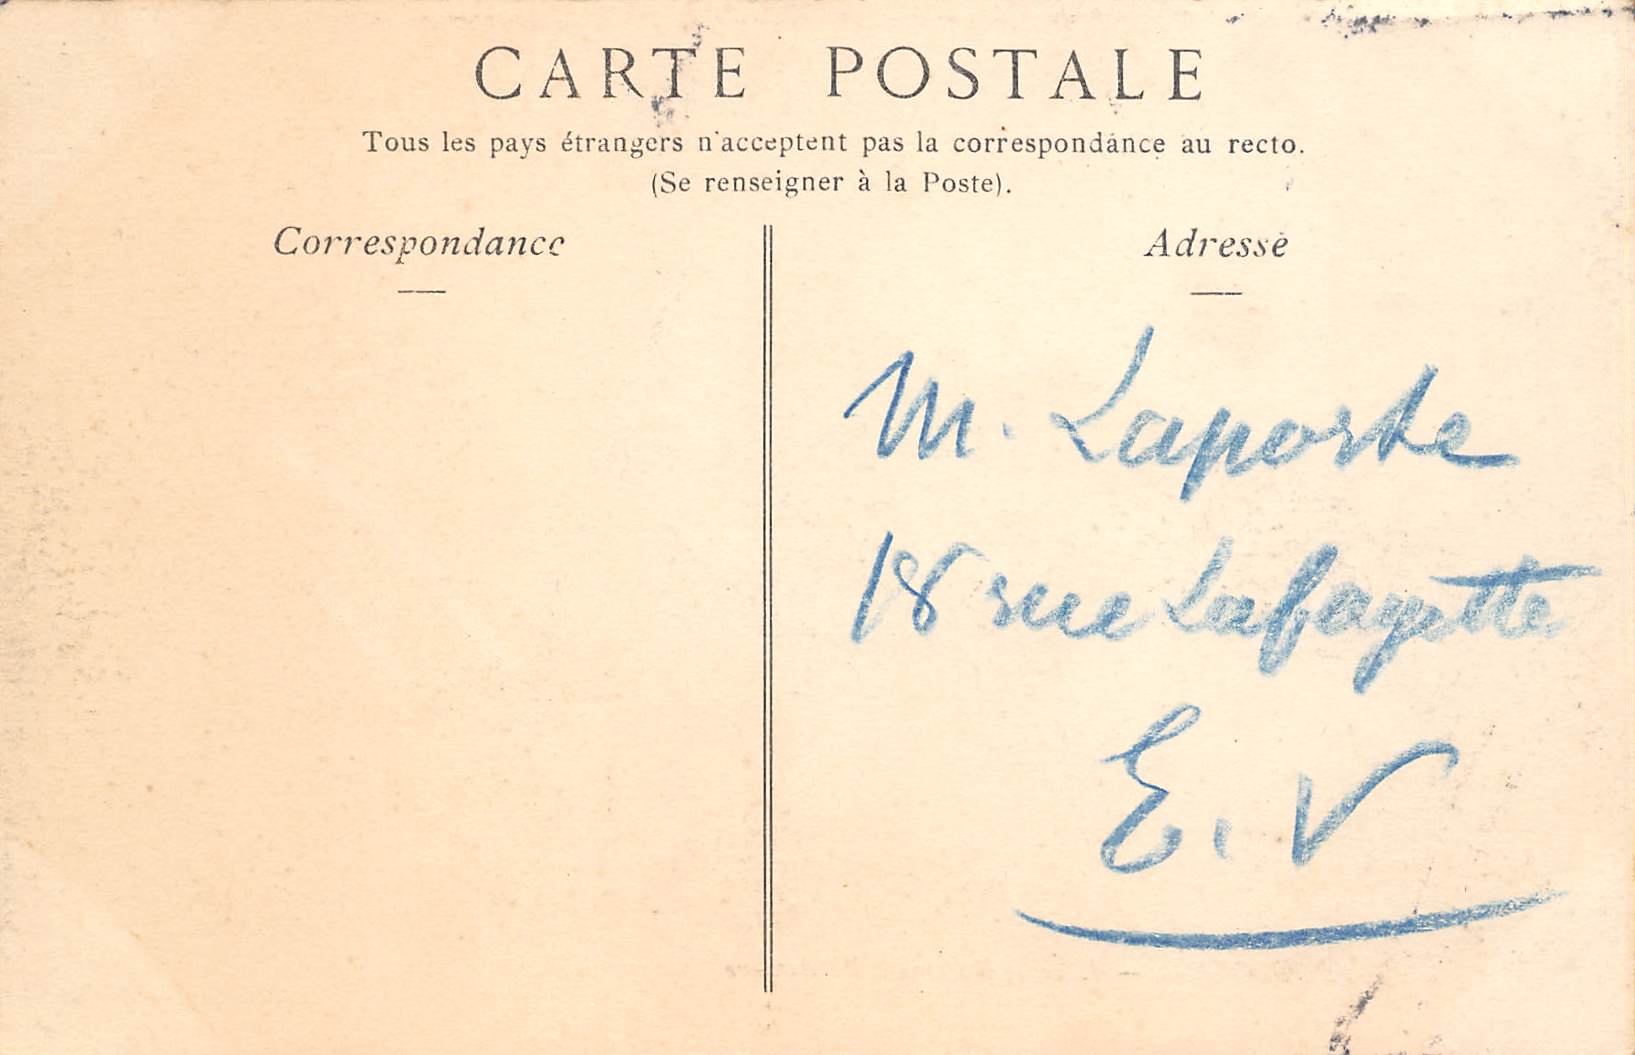 CARTE POSTALE
Tous les pays étrangers n'acceptent pas la correspondance au recto.
(Se renseigner à la Poste).
Correspondance
Adresse
M. Laporte
18 rue Lafayette
E. V